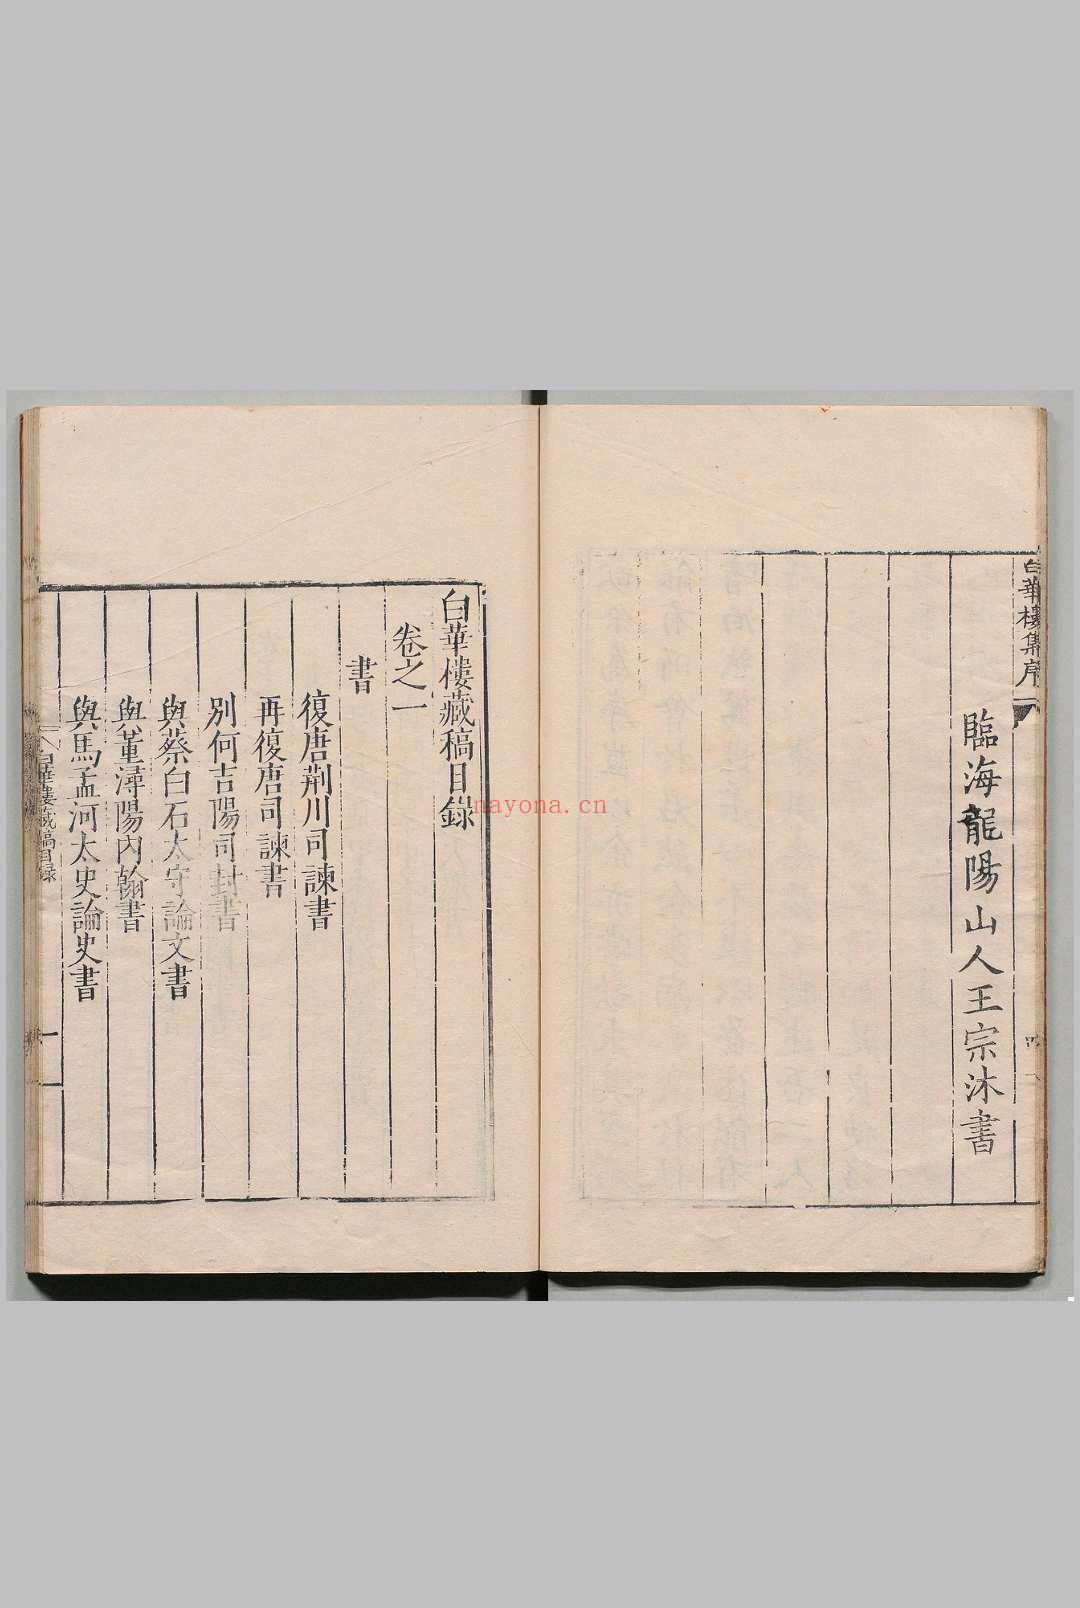 白華樓集序
四
臨海龍陽山人王宗沐書
白華樓藏稿目錄
卷之一
書
復唐荊川司諫書
再復唐司諫書
別何吉陽司封書
與蔡白石太守論文書
與董潯陽內翰書
與馬孟河太史論史書
白華樓藏稿目錄
一
nayona.cn